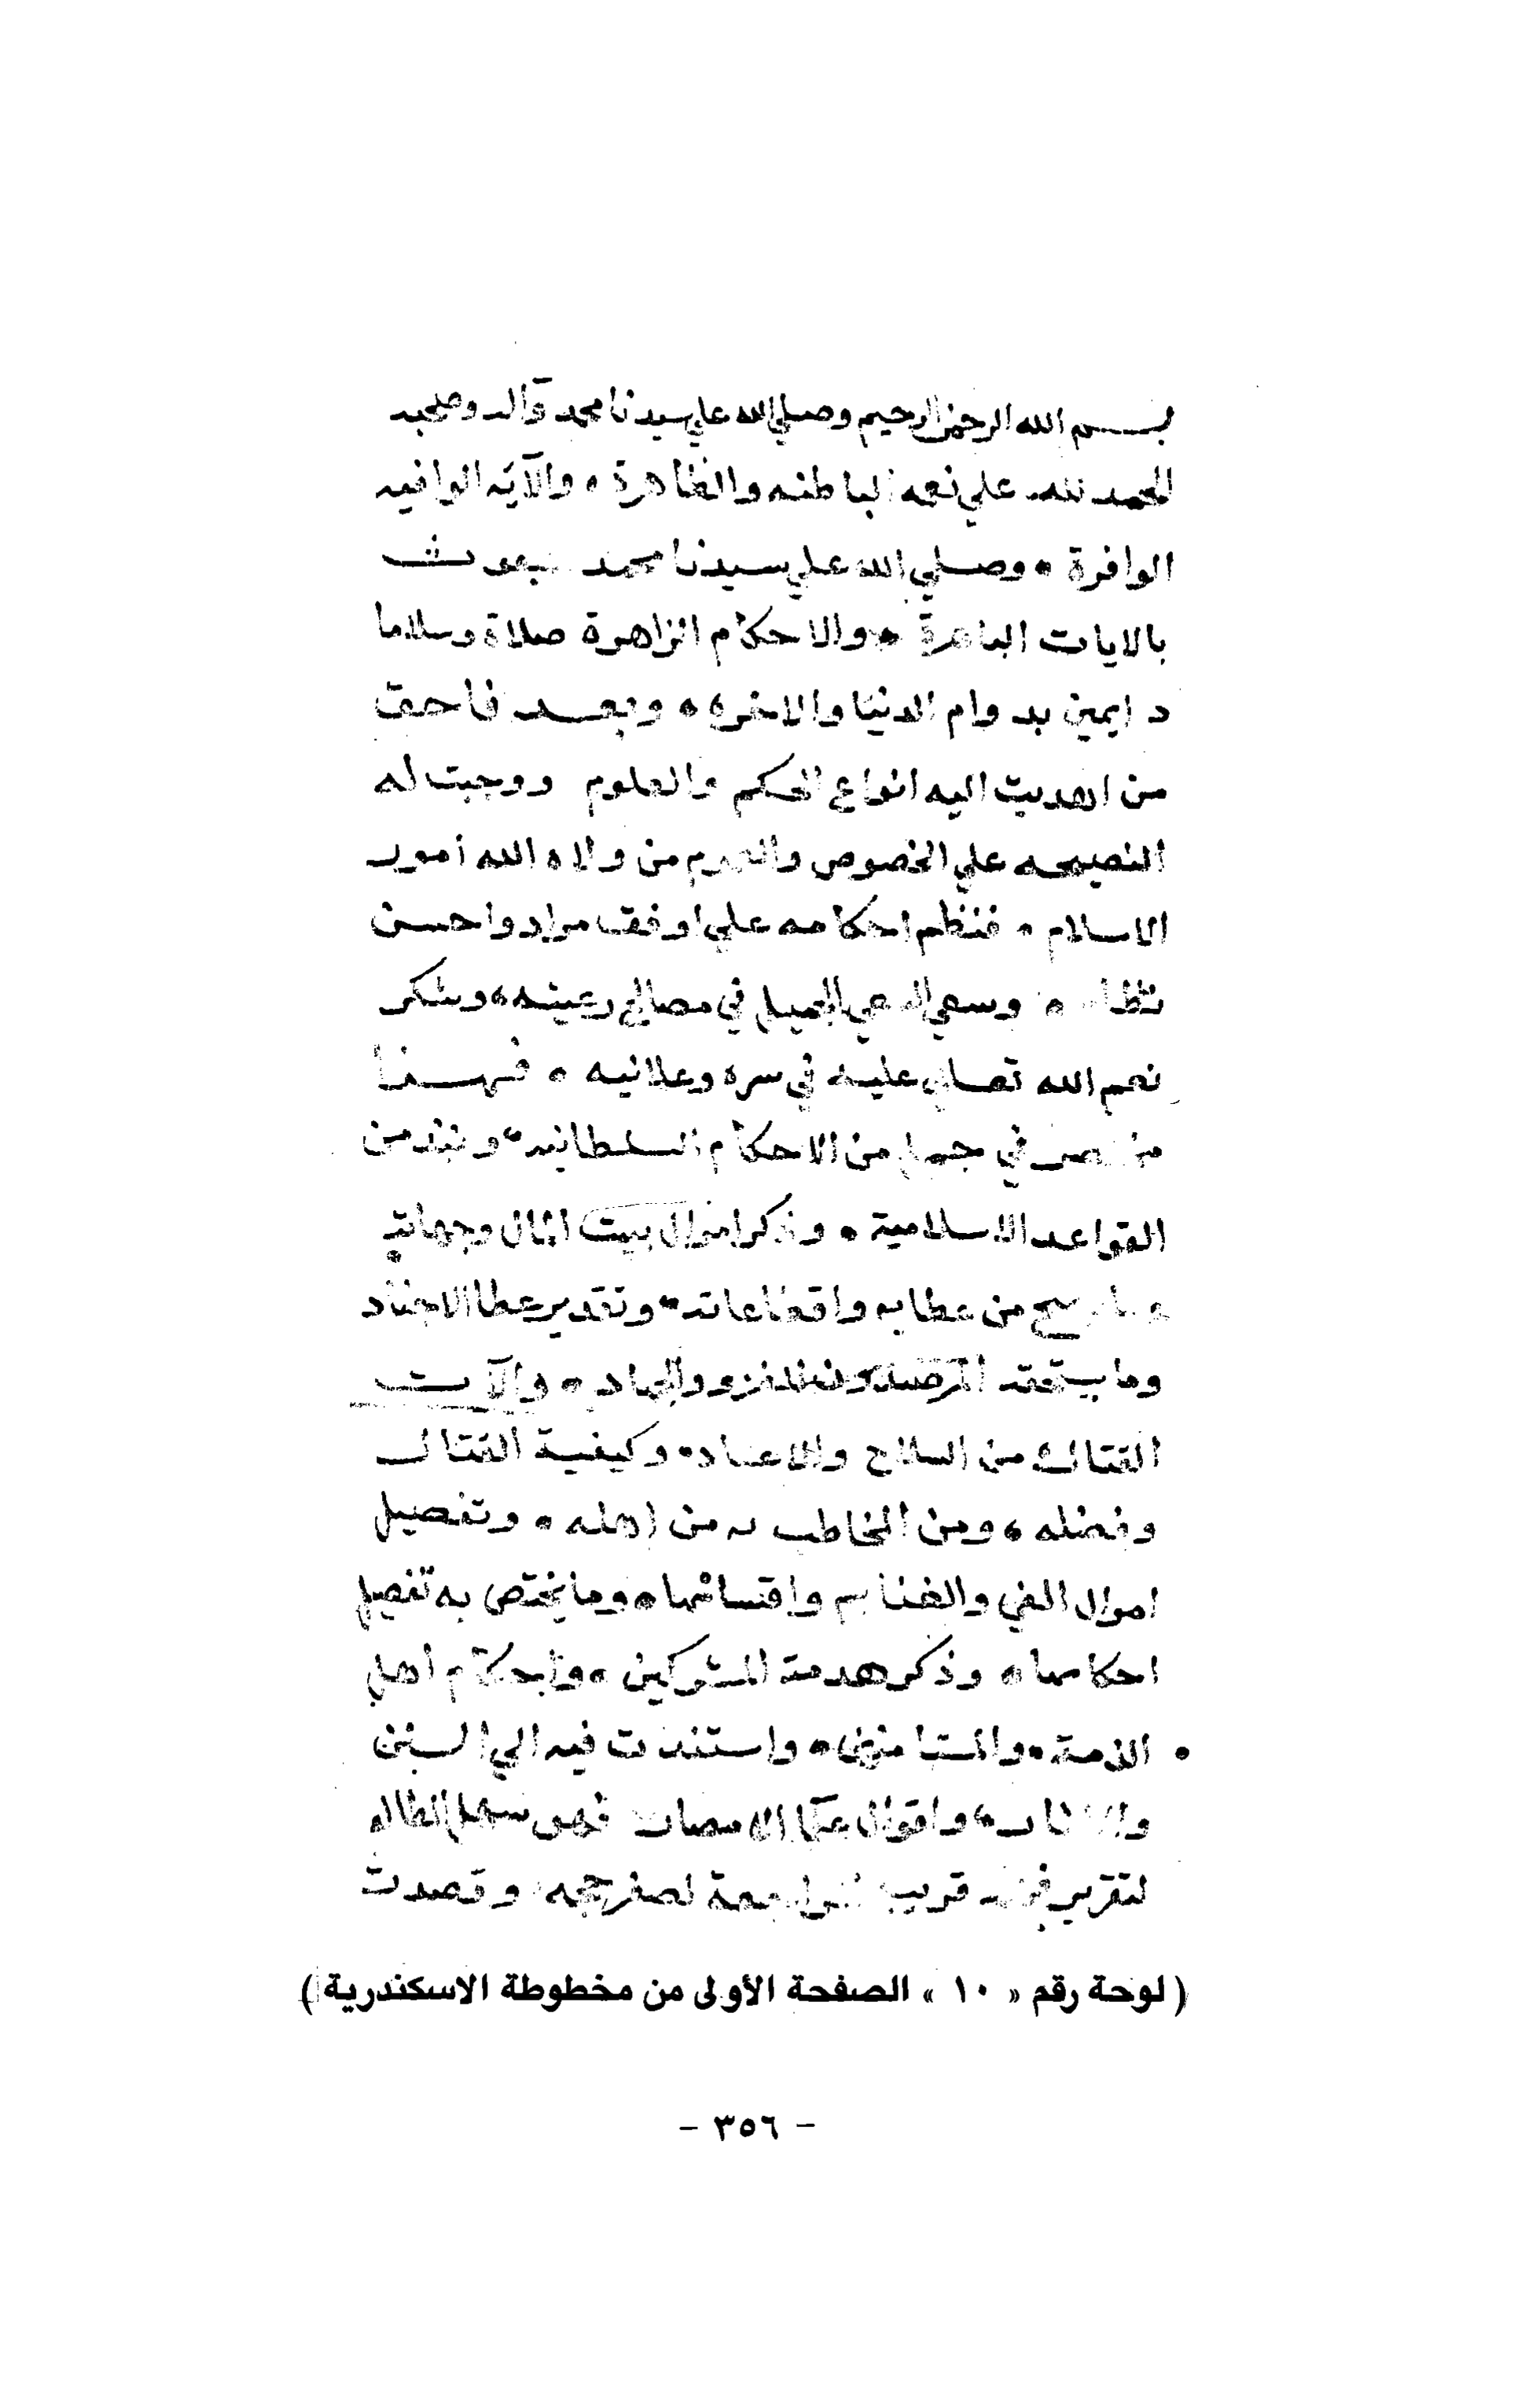 بسم الله الرحمن الرحيم وصلي الله علي سيدنا محمد واله وصحبه
الحمد لله علي نعمه الباطنه والظاهرة • والآيه الوافيه
الوافرة • وصلي الله علي سيدنا محمد
بالايات الباهرة • والاحكام الزاهرة صلاة وسلاما
دايمين بدوام الدنيا والاخره • وبعد فاحق
من اهديت اليه انواع الحكم والعلوم ووجبت له
النصيحه علي الخصوص والعموم من ولاه الله امور
الاسلام • فنظم احكامه علي اوفق مراد واحسن
وسعي السعي الجميل في مصالح رعيته • وشكر
نعم الله تعالي عليه في سره وعلانيه • فهذا
مختصر في جمل من الاحكام السلطانيه • ونبذ من
القواعد الاسلامية • وذكر اموال بيت المال وجهاته
من عطايه واقطاعاته • وتقدير عطا الاجناد
وما يستحقه المرصدون للغزو والجهاد • وآلات
القتال من السلاح والاعتاد • وكيفية القتال
وفضله • ومن المخاطب به من اهله • وتفصيل
اموال الفي والغنايم واقتسامها • وما يختص به تفصيل
احكامها • وذكر هدمة المشركين • واحكام اهل
الذمة • والمستامنين • واستندت فيه الي السنن
والاثار • واقوال علما الامصار فهو سهل
قريب المراجعة لصغر حجمه وقصدت
( لوحة رقم « ١٠ » الصفحة الأولى من مخطوطة الاسكندرية )
- ٣٥٦ -